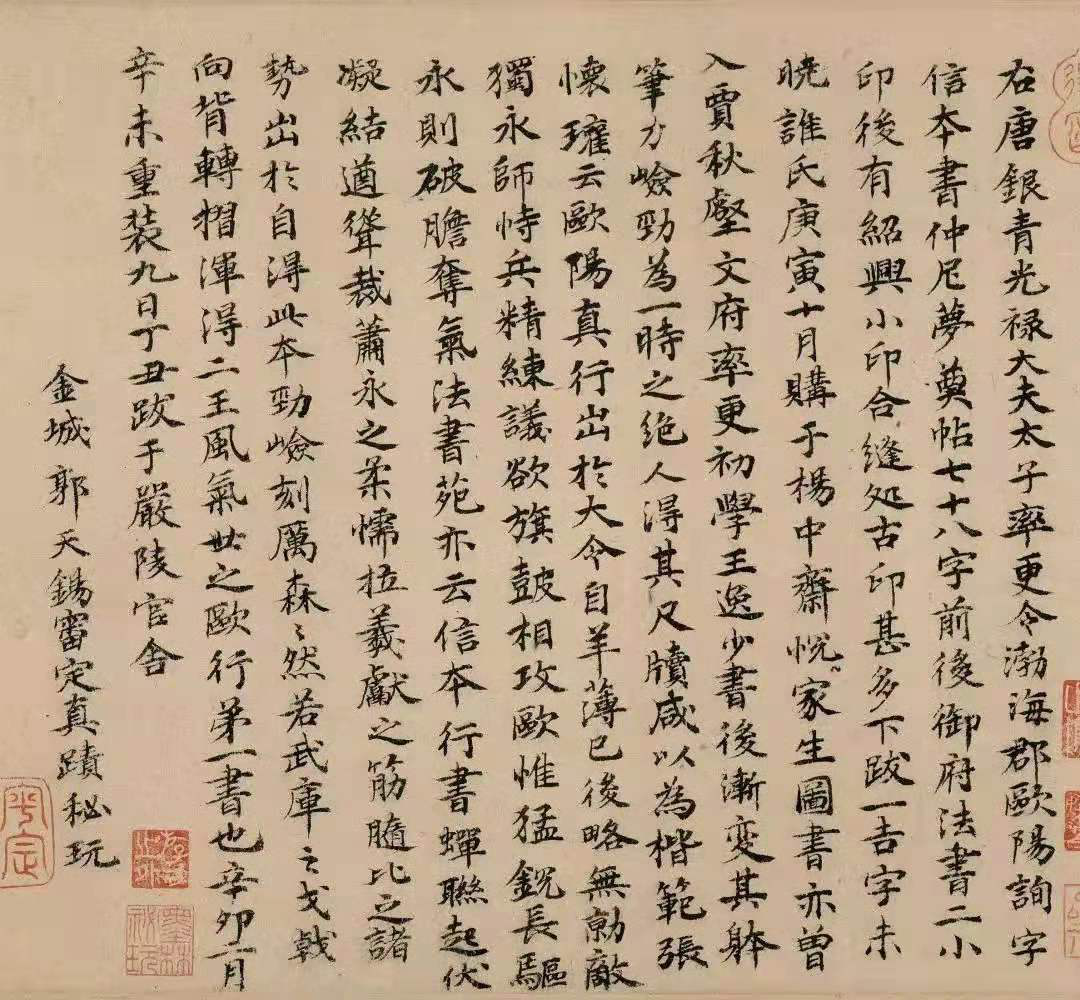 右唐銀青光禄大夫太子率更令渤海郡歐陽詢字
信本書仲尼夢奠帖七十八字前後御府法書二小
印後有紹興小印合縫处古印甚多下跋一吉字未
曉誰氏庚寅十月購于楊中齋悦〻家生圖書亦曾
入賈秋壑文府率更初學王逸少書後漸變其躰
筆力嶮勁為一時之绝人淂其尺牘咸以為楷範張
懷瓘云歐陽真行出於大令自羊薄已後略無勍敵
獨永師恃兵精練議欲旗鼓相攻歐惟猛銳長驅
永則破膽奪氣法書苑亦云信本行書蟬聯起伏
凝結遒聳裁蕭永之柔懦拉羲獻之筋髓比之諸
勢出於自得此本勁嶮刻厲森〻然若武庫之戈戟
向背轉摺渾淂二王風氣世之歐行第一書也辛卯二月
辛未重装九日丁丑跋于嚴陵官舍
金城郭天錫審定真蹟秘玩
平定